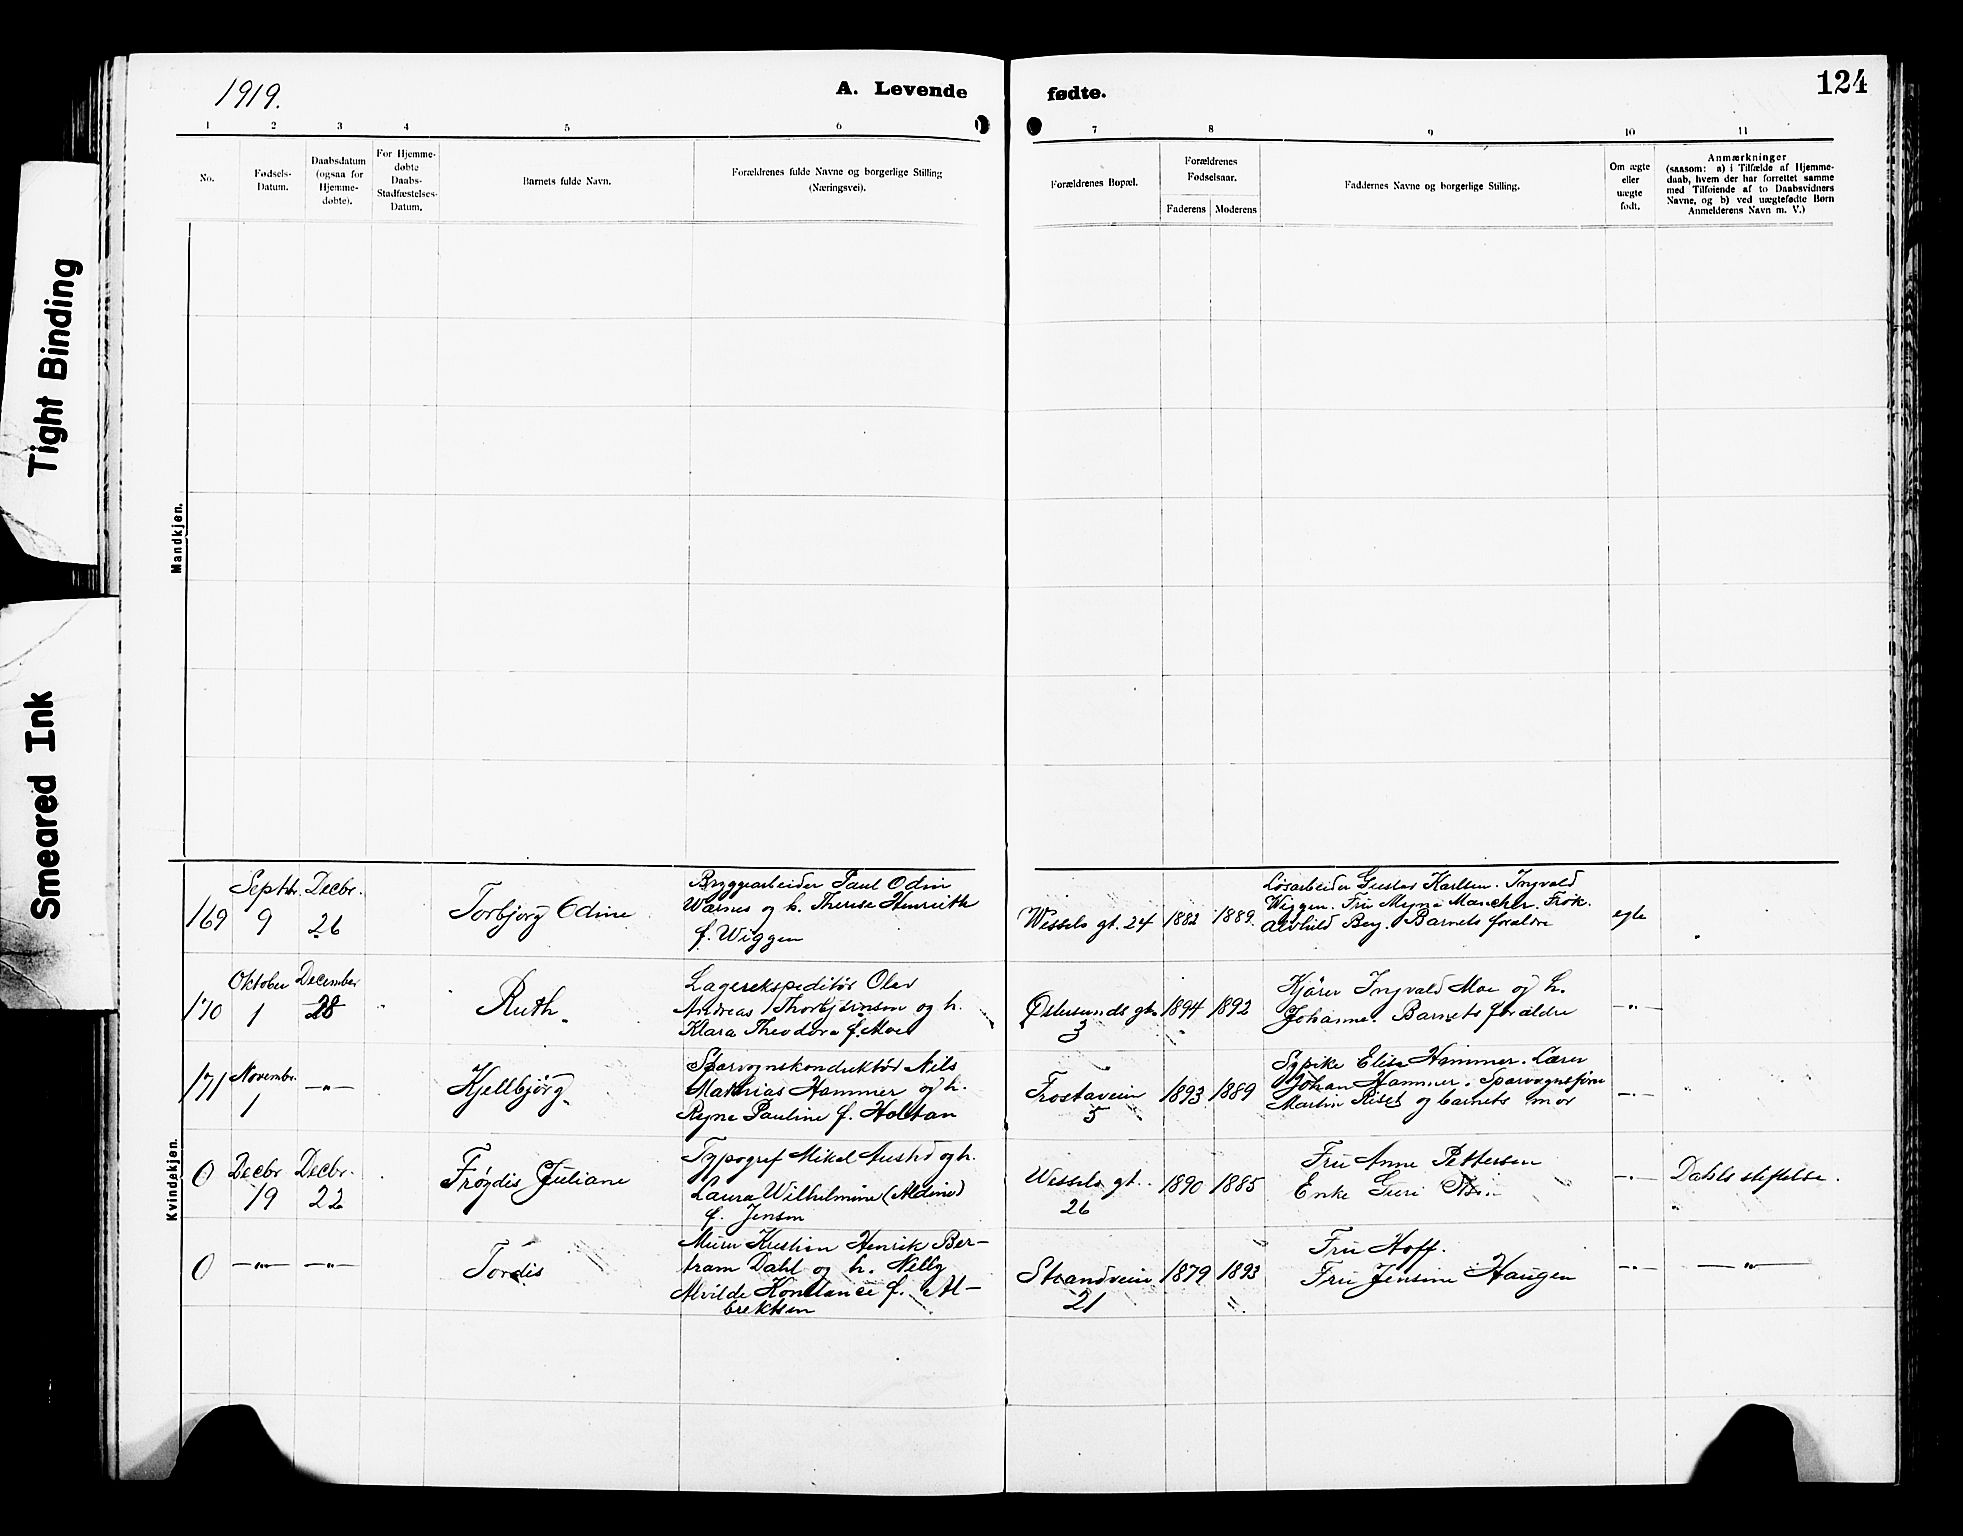 1919.
A. Levende fødte.
124
1 2 3 4 5 6 7 8 9 10 11
No.
Fødsels-
Datum.
Daabsdatum
(ogsaa for
Hjemme-
døbte).
For Hjemme-
døbte
Daabs-
Stadfæstelses-
Datum.
Barnets fulde Navn.
Forældrenes fulde Navne og borgerlige Stilling
(Næringsvei).
Forældrenes Bopæl.
Forældrenes
Fødselsaar.
Faderens Moderens
Faddernes Navne og borgerlige Stilling.
Om ægte
eller
uægte
født.
Anmærkninger
(saasom: a) i Tilfælde af Hjemme-
daab, hvem der har forrettet samme
med Tilføiende af to Daabsvidners
Navne, og b) ved uægtefødte Børn
Anmelderens Navn m. V.)
Mandkjøn.
Kvindekjøn.
169
Septbr. Decbr.
9 26
Torbjørg Odine
Bryggearbeider Paul Odin
Wærnes og h. Therese Henriette
f. Wiggen
Wessels gt. 24
1882 1889.
Løsarbeider Gustav Karlsen. Ingvald
Wiggen. Fru Frøk.
Alvhild Berg. Barnets forældre
egte
170
Oktober December
1 28
Ruth
Lagerekspeditør Olav
Andreas Thorbjörnson og h.
Klara Theodora f. Moe
Østersunds gt.
3
1894 1892
Kjörer Ingvald Moe og h.
Johanne. Barnets forældre
-"-
171
Novembr.
1 -"-
Kjellbjörg
Sporvognskonduktör Nils
Mathias Hammer og h.
Regne Pauline f. Holstan
Frostaveien
5
1893 1889
Sypike Elise Hammer. Lærer
Johan Hammer. Sporvognsfører
Martin Riset og barnets mor
-"-
0
Decbr Decbr.
19 22
Fröydis Juliane
Typograf Mikal og h.
Laura Wilhelmine (Aldine)
f. Jensen
Wessels gt.
26
1890 1885
Fru Anne Pettersen
Enke Guri
-"-
Dahls stiftelse.
0
-"- -"-
Tordis
Murer Kristian Henrik Ber-
tram Dahl og h. Nelly
Alvilde Konstance f. Al-
brektsen
Strandveien
21
1879 1893
Fru Hoff.
Fru Jensine Haugen
-"-
-"-
Tight Binding
Smeared Ink